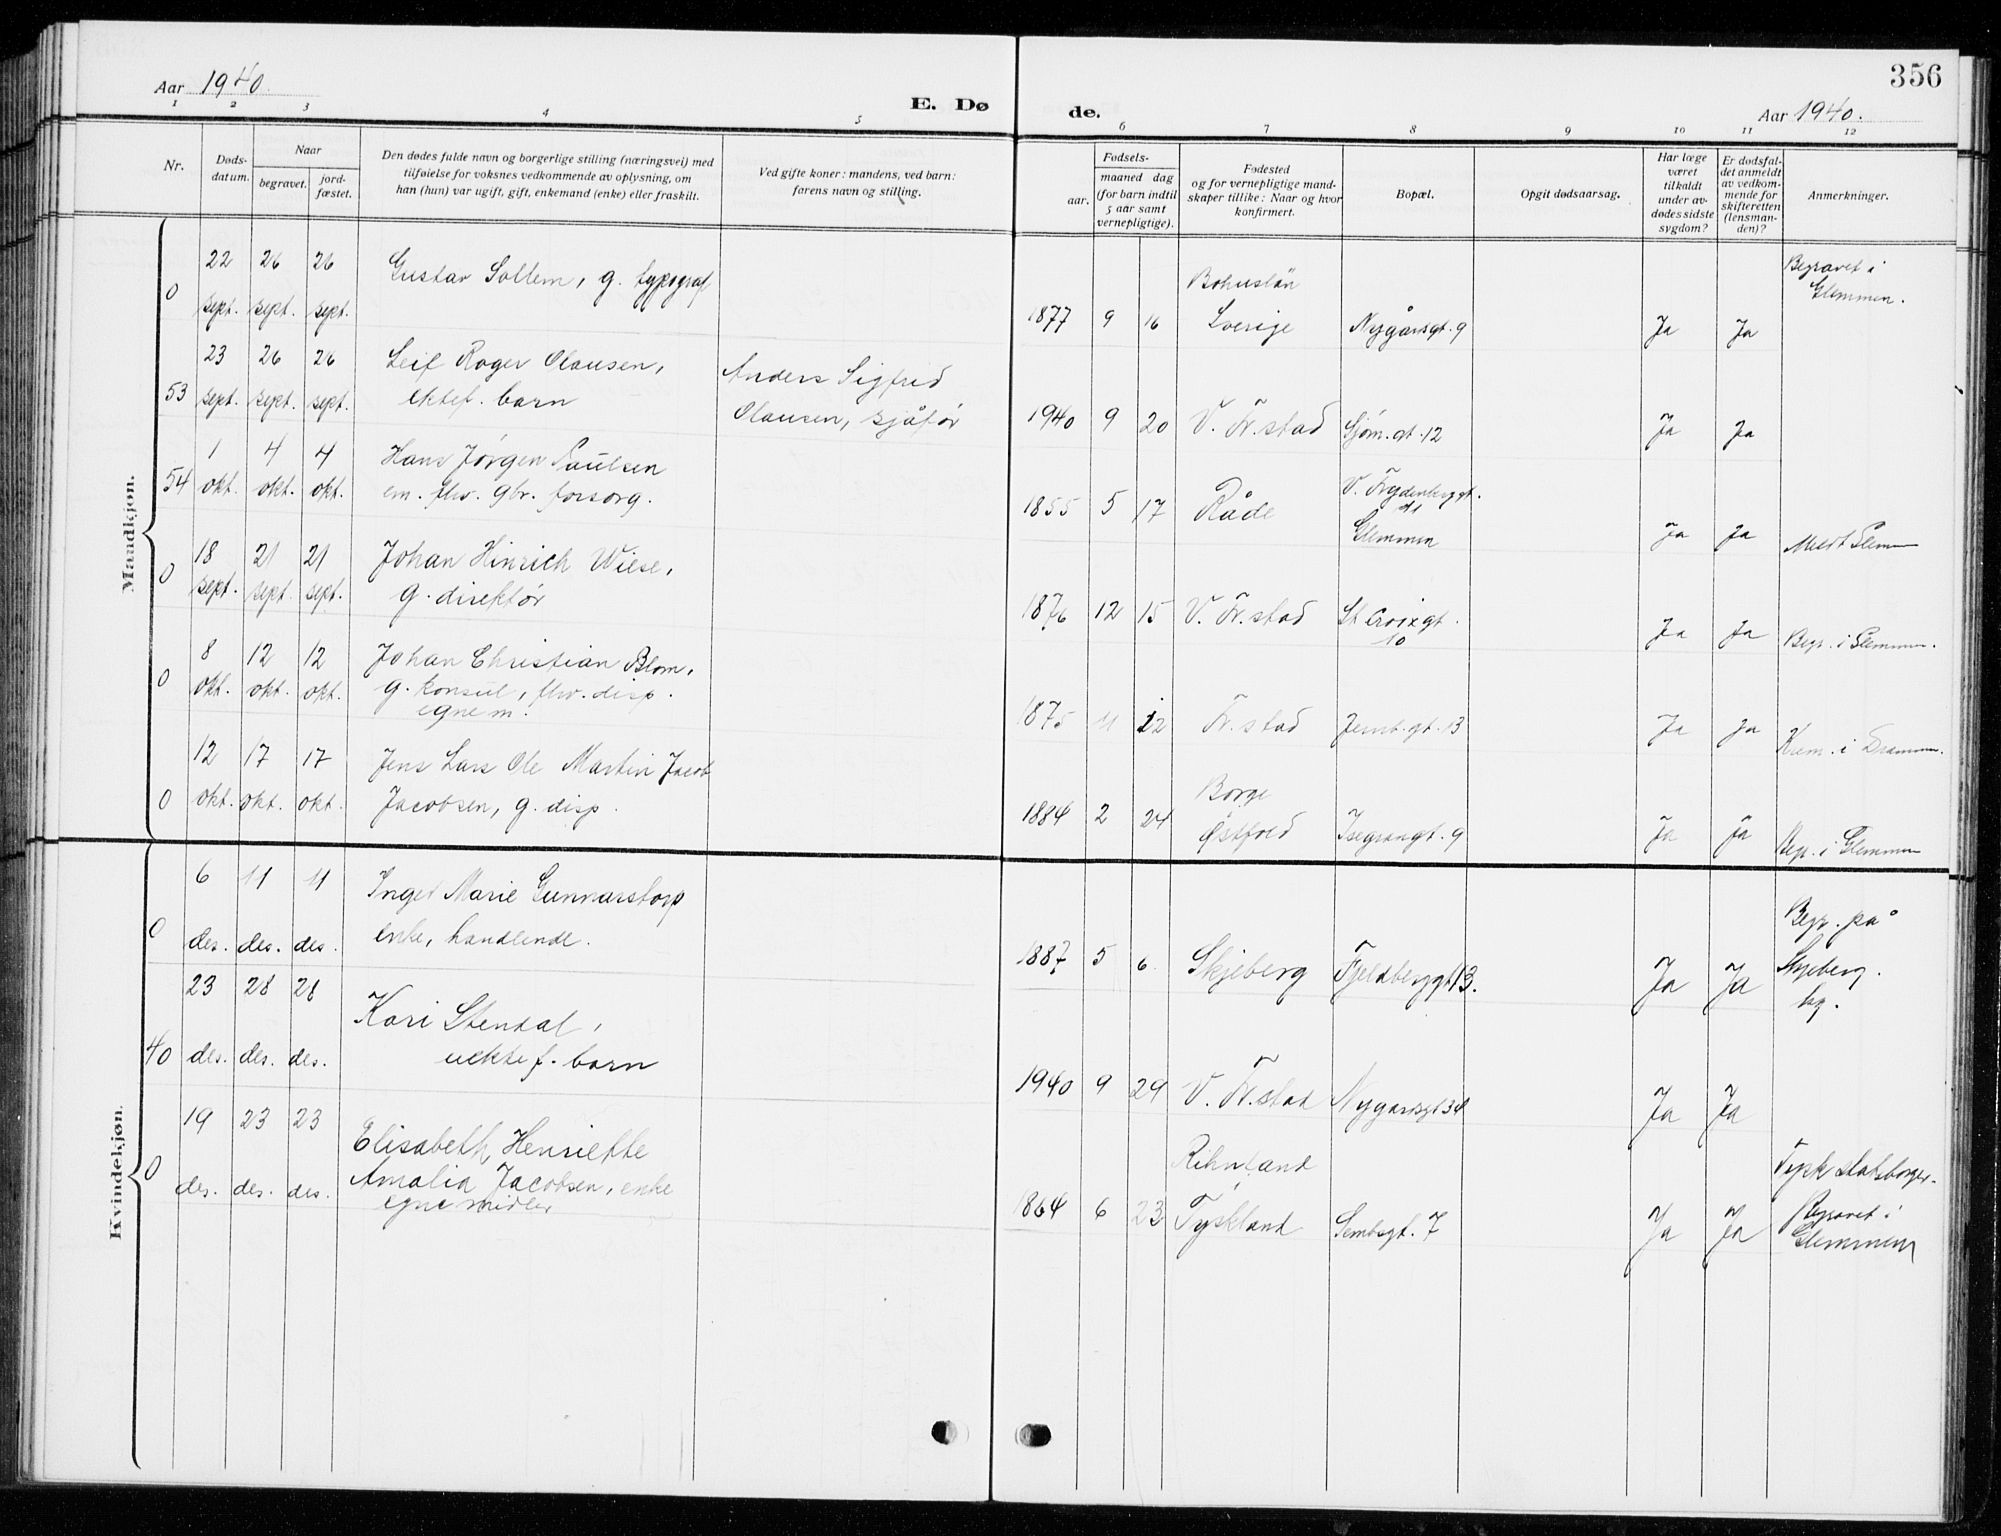 Aar 1940.
E. Døde.
Aar 1940.
356
1 2 3 4 5 6 7 8 9 10 11 12
Nr.
Døds-
datum.
Naar
begravet.
jord-
fæstet.
Den dødes fulde navn og borgerlige stilling (næringsvei) med
tilføielse for voksnes vedkommende av oplysning, om
han (hun) var ugift, gift, enkemand (enke) eller fraskilt.
Ved gifte koner: mandens, ved barn:
farens navn og stilling.
Fødsels-
aar.
maaned dag
(for barn indtil
5 aar samt
vernepligtige).
Fødested
og for vernepligtige mand-
skaper tillike: Naar og hvor
konfirmert.
Bopæl.
Opgit dødsaarsag.
Har læge
været
tilkaldt
under av-
dødes sidste
sygdom?
Er dødsfal-
det anmeldt
av vedkom-
mende for
skifteretten
(lensman-
den)?
Anmerkninger.
Mandkjøn.
0 22 sept. 26 sept. 26 sept.
Gustav Sollem, g. typograf
1877 9 16
Bohuslän
Sverige
Nygårdsgt. 9
Ja Ja
Begravet i
Glemmen.
53 23 sept. 26 sept. 26 sept.
Leif Roger Olausen,
ektef. barn
Anders Sigfred
Olausen, sjåfør
1940 9 20 V. Fr.stad Sjøm.gt. 12 Ja Ja
54 1 okt. 4 okt. 4 okt.
Hans Jørgen Paulsen
em. fhv. gbr. forsorg.
1855 5 17 Råde
V. Frydenberggt.
Glemmen
Ja Ja
0 18 sept. 21 sept. 21 sept.
Johan Hinrich Wiese,
g. direktør
1876 12 15 V. Fr.stad St. Croixgt.
10
Ja Ja Begr. i Glemmen.
0 8 okt. 12 okt. 12 okt.
Johan Christian Blom,
g. konsul, fhv. disp.
egne m.
1875 11 22 Fr.stad Jernb.gt. 13 Ja Ja Krem. i Drammen.
0 12 okt. 17 okt. 17 okt.
Jens Lars Ole Martin Jacob
Jacobsen, g. disp.
1884 2 24
Borge
Østfold
Isegrangt. 9 Ja Ja Begr. i Glemmen
Kvindekjøn.
0 6 des. 11 des. 11 des.
Inger Marie Gunnarstorp
enke, handlende.
1887 5 6 Skjeberg Fjeldberggt 13. Ja Ja
Begr. på
Skjeberg
kg.
40 23 des. 28 des. 28 des.
Kari Stendal,
uektef. barn
1940 9 29 V. Fr.stad Nygårdsgt 34 Ja Ja
0 19 des. 23 des. 23 des.
Elisabeth Henriette
Amalia Jacobsen, enke
egne midler
1864 6 23
Rihnland
Tyskland
Sembsgt. 7 Ja Ja
Tysk statsborger.
Begravet i
Glemmen